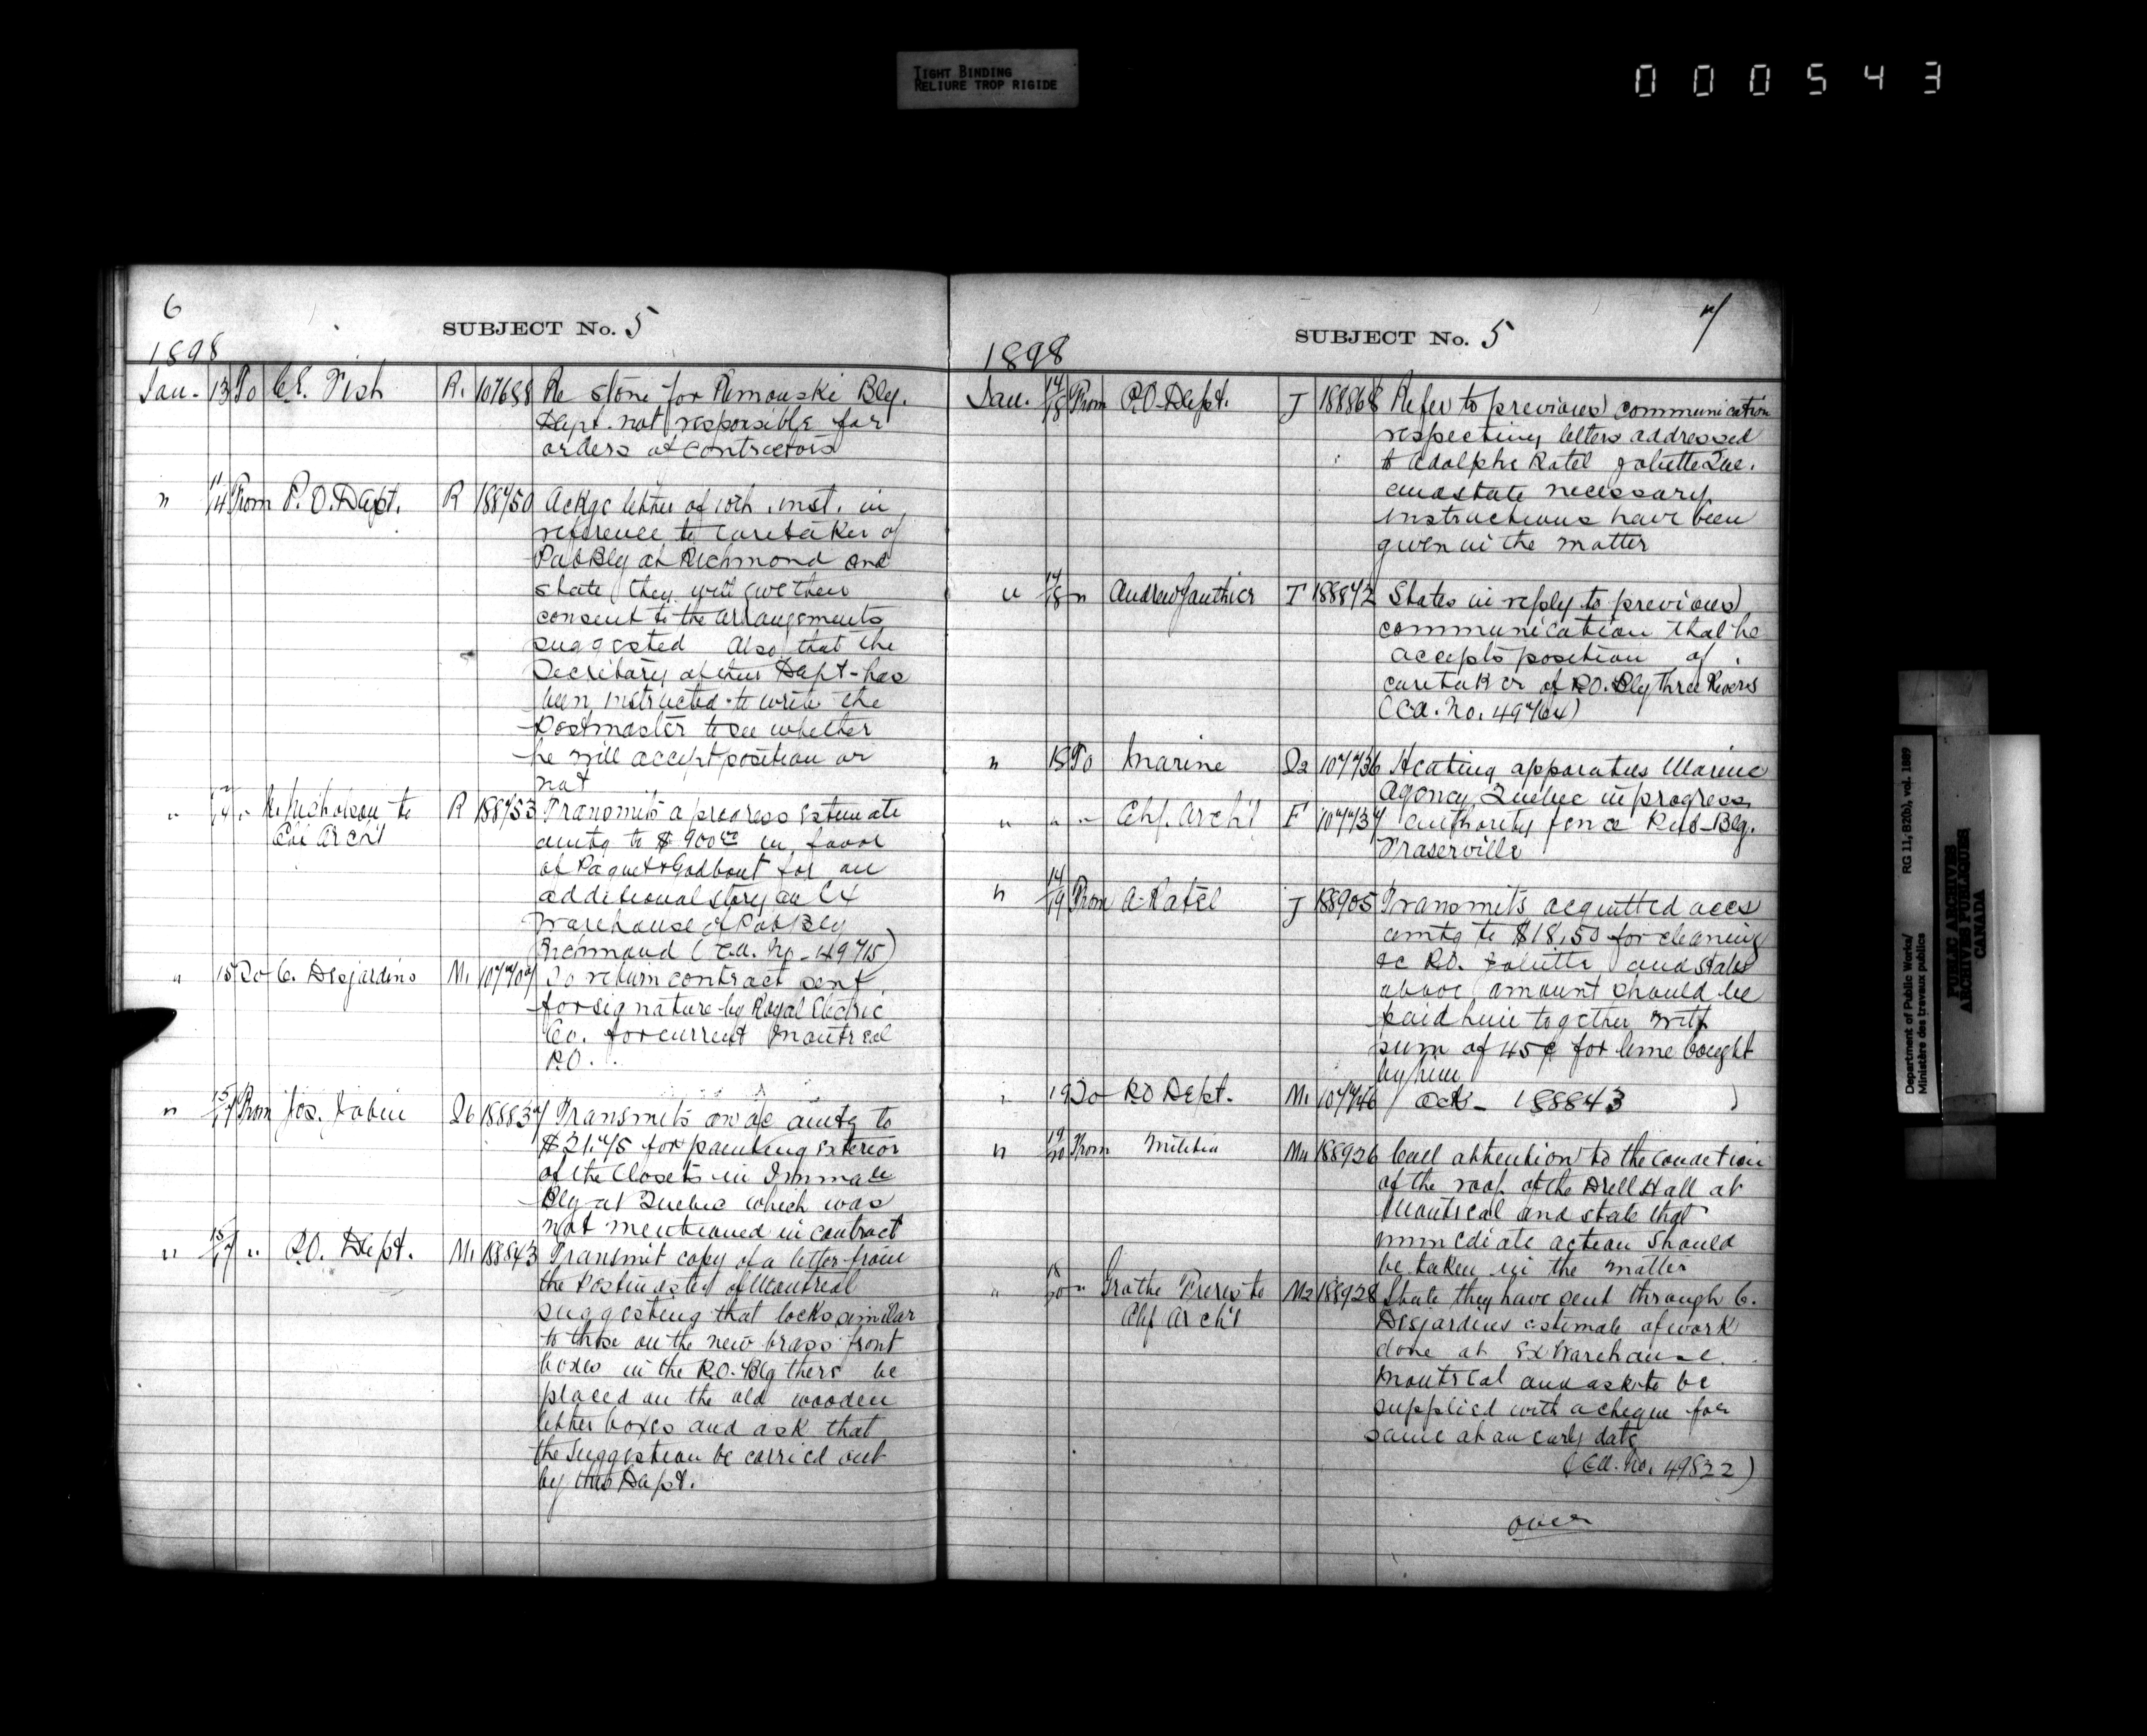 TIGHT BINDING
RELIURE TROP RIGIDE
000543
6
SUBJECT No. 5
1898
Jan. 13 To C.E. Fish R. 107688 Re stone for Rimouski Blg.
Dept. not responsible for
orders of contractors
" 11/14 From P.O. Dept. R 188750 Ackge letter of 10th inst. in
reference to caretaker of
Pub Blg at Richmond and
state they will give their
consent to the arrangements
suggested Also that the
Secretary of their Dept- has
been instructed to write the
Postmaster to see whether
he will accept position or
not
" " Nicholson to R 188753 Transmits a progress estimate
Chf Arch't amtg to $900.00 in favor
of Paquet & Godbout for an
additional story on Ex
Warehouse & Pub Blg
Richmond (Ca. No. 49715)
" 15 To C. Desjardins M1 107707 To return contract sent
for signature by Royal Electric
Co. for current Montreal
P.O.
" 15/17 From Jos. Jobin Q6 188837 Transmits an a/c amtg to
$21.75 for painting exterior
of the Closets in Immgn
Blg at Quebec which was
not mentioned in contract
" 15/17 " P.O. Dept. M1 188843 Transmit copy of a letter from
the Postmaster of Montreal
suggesting that locks similar
to those on the new brass front
boxes in the P.O. Blg there be
placed on the old wooden
letter boxes and ask that
the suggestion be carried out
by this Dept.
7
SUBJECT No. 5
1898
Jan. 14/18 From P.O. Dept. J 188868 Refer to previous communication
respecting letters addressed
to Adolphe Ratel Joliette Que.
and state necessary
instructions have been
given in the matter
" 17/18 " Andrew Gauthier T 188872 States in reply to previous
communication that he
accepts position of
caretaker of P.O. Blg Three Rivers
(Ca. No. 49764)
" 18 To Marine Q2 107736 Heating apparatus Marine
Agency, Quebec in progress
" " " Chf. Arch't F 107737 Authority fence Pub-Blg.
Fraserville
" 14/19 From A. Ratel J 188905 Transmits acquitted accs
amtg to $18.50 for cleaning
&c P.O. Joliette and states
above amount should be
paid him together with
sum of 45¢ for lime bought
by him
" 19 To P.O. Dept. M1 107746 ack- 188843
" 19/20 From Militia M4 188926 Call attention to the condition
of the roof of the Drill Hall at
Montreal and state that
immediate action should
be taken in the matter
" 18/20 " Grothe Freres to M2 188928 State they have sent through C.
Chf Arch't Desjardins estimate of work
done at Ex Warehouse
Montreal and ask to be
supplied with a cheque for
same at an early date
(Ca. No. 49822)
over
Department of Public Works/ RG 11, B2(b), vol. 1889
Ministère des travaux publics
PUBLIC ARCHIVES
ARCHIVES PUBLIQUES
CANADA